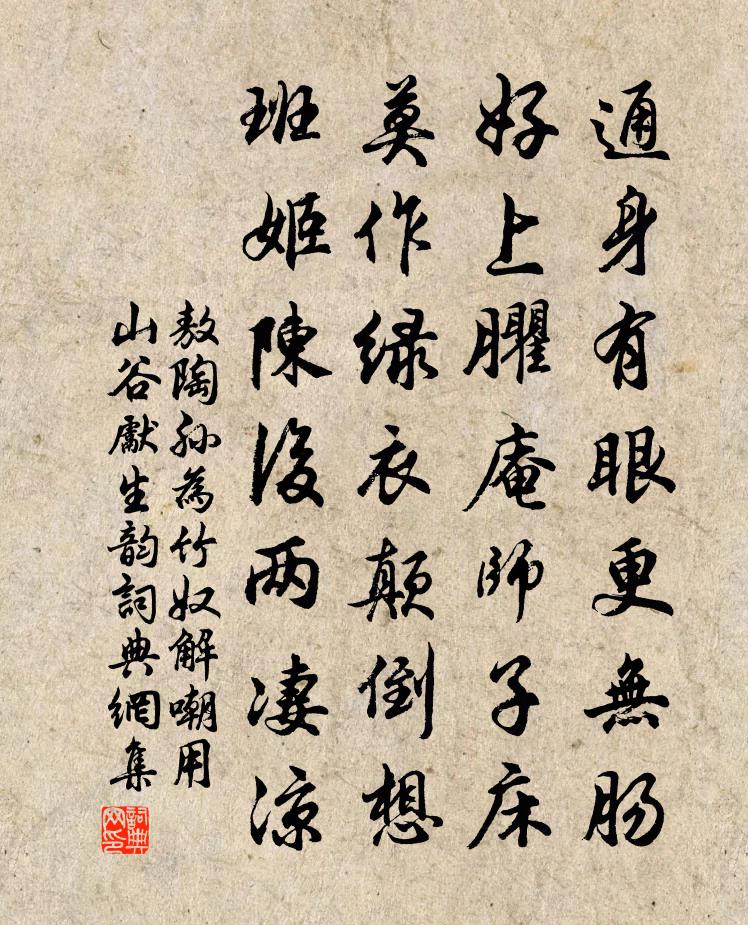 通身有眼更無腸
好上臞庵師子床
莫作緑衣顛倒想
班姬陳後两凄涼
敖陶孫為竹奴解嘲用
山谷獻生韵詞典網集
詞典網印